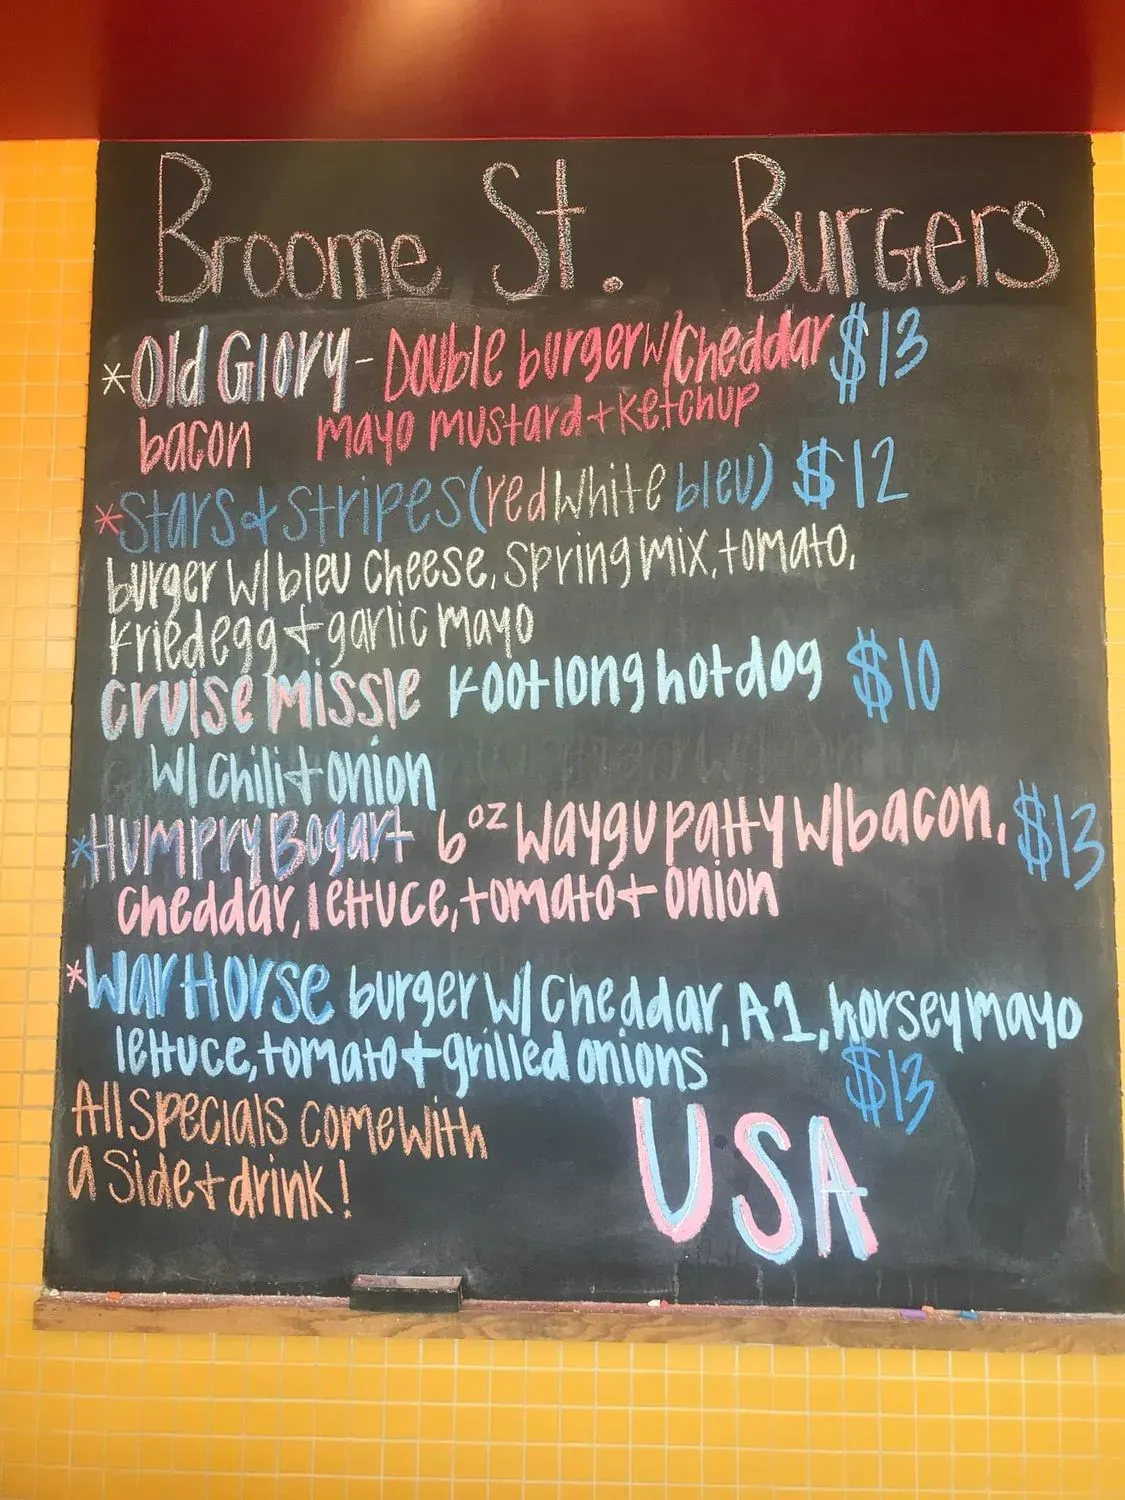 Broome St. Burgers
*Old Glory - Double burger w/cheddar $13
bacon mayo mustard + ketchup
*Stars & Stripes (red white bleu) $12
burger w/ bleu cheese, spring mix, tomato,
fried egg + garlic mayo
Cruise Missle footlong hotdog $10
w/ chili + onion
*Humpry Bogart 6oz Waygu patty w/bacon, $13
cheddar, lettuce, tomato + onion
*War Horse burger w/ cheddar, A1, horsey mayo
lettuce, tomato + grilled onions
$13
All specials come with
a side + drink!
USA